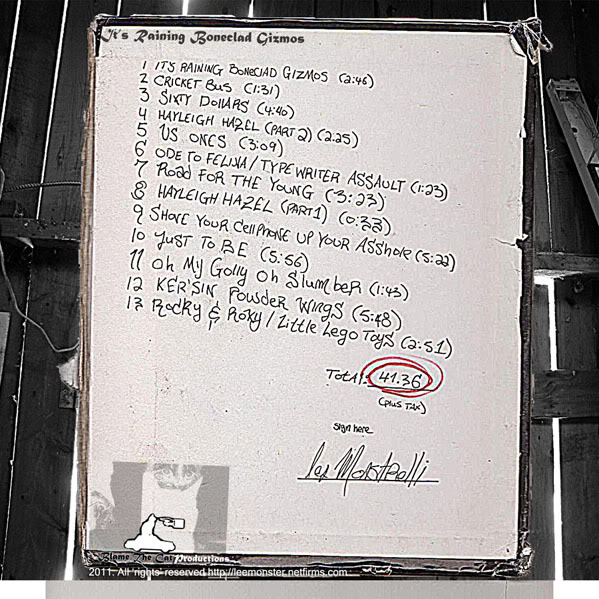 It's Raining Boneclad Gizmos
1 IT'S RAINING BONECLAD GIZMOS (2:46)
2 CRICKET BUS (1:31)
3 SIXTY DOLLARS (4:40)
4 HAYLEIGH HAZEL (PART 2) (2:25)
5 US ONES (3:09)
6 ODE TO FELINA / TYPEWRITER ASSAULT (1:23)
7 ROAD FOR THE YOUNG (3:23)
8 HAYLEIGH HAZEL (PART 1) (0:33)
9 SHOVE YOUR CELLPHONE UP YOUR ASSHOLE (5:22)
10 JUST TO BE (5:56)
11 Oh My Golly Oh Slumber (1:43)
12 KER'SIN POWDER WINGS (5:48)
13 ROCKY & ROXY / LITTLE LEGO TOYS (2:51)
TOTAL: 41.36
(PLUS TAX)
Sign here
Blame The Cat Productions
2011. All 'rights' reserved http://leemonster.netfirms.com